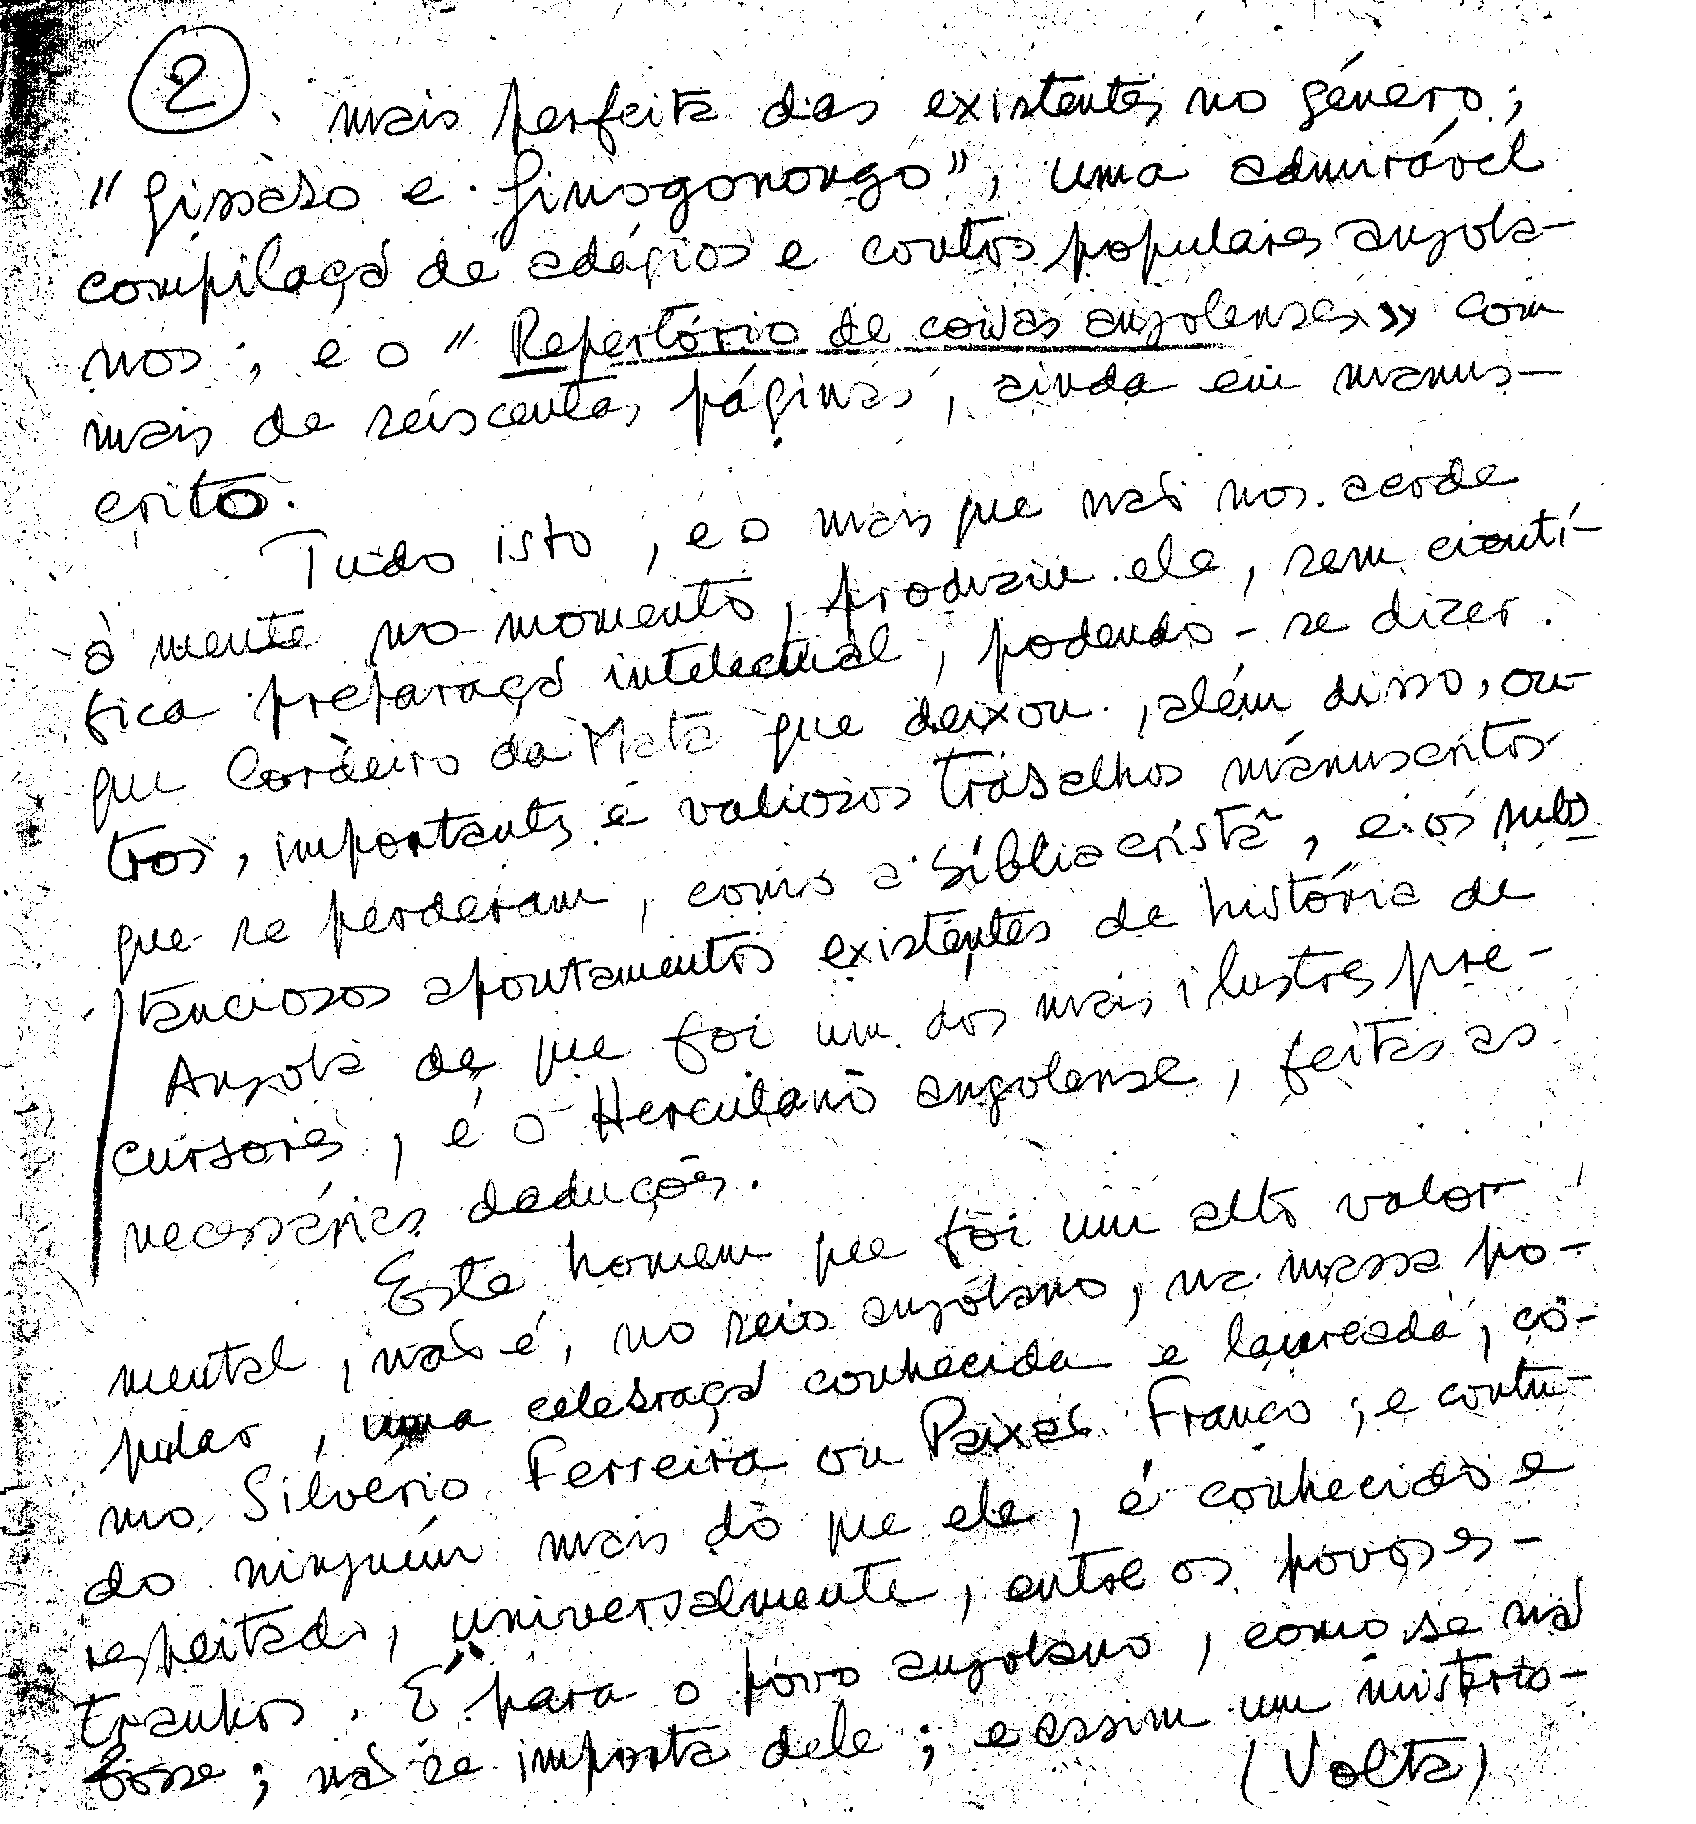 2
mais perfeita das existentes no género;
"Jissabo e Jinogonongo", uma admirável
compilação de adágios e contos populares angola-
nos; e o "Repertório de coisas angolenses» com
mais de seiscentas páginas, ainda em manus-
crito.
Tudo isto, e o mais que não nos acode
à mente no momento, produziu ele, sem cientí-
fica preparação intelectual, podendo-se dizer
que Cordeiro da Mata que deixou, além disso, ou-
tros, importantes e valiosos trabalhos manuscritos
que se perderam, como a Bíblia cristã, e os subs
tanciosos apontamentos existentes de história de
Angola de que foi um dos mais ilustres pre-
cursores, é o Herculano angolense, feitas as
necessárias deduções.
Este homem que foi um alto valor
mental, não é, no seio angolano, na massa po-
pular, uma celebração conhecida e laureada, co-
mo Silvério Ferreira ou Paixão Franco; e contu-
do ninguém mais do que ele, é conhecido e
respeitado, universalmente, entre os povos es-
tranhos. É para o povo angolano, como se não
fosse; não se importa dele; e assim um misterio-
(Volta)